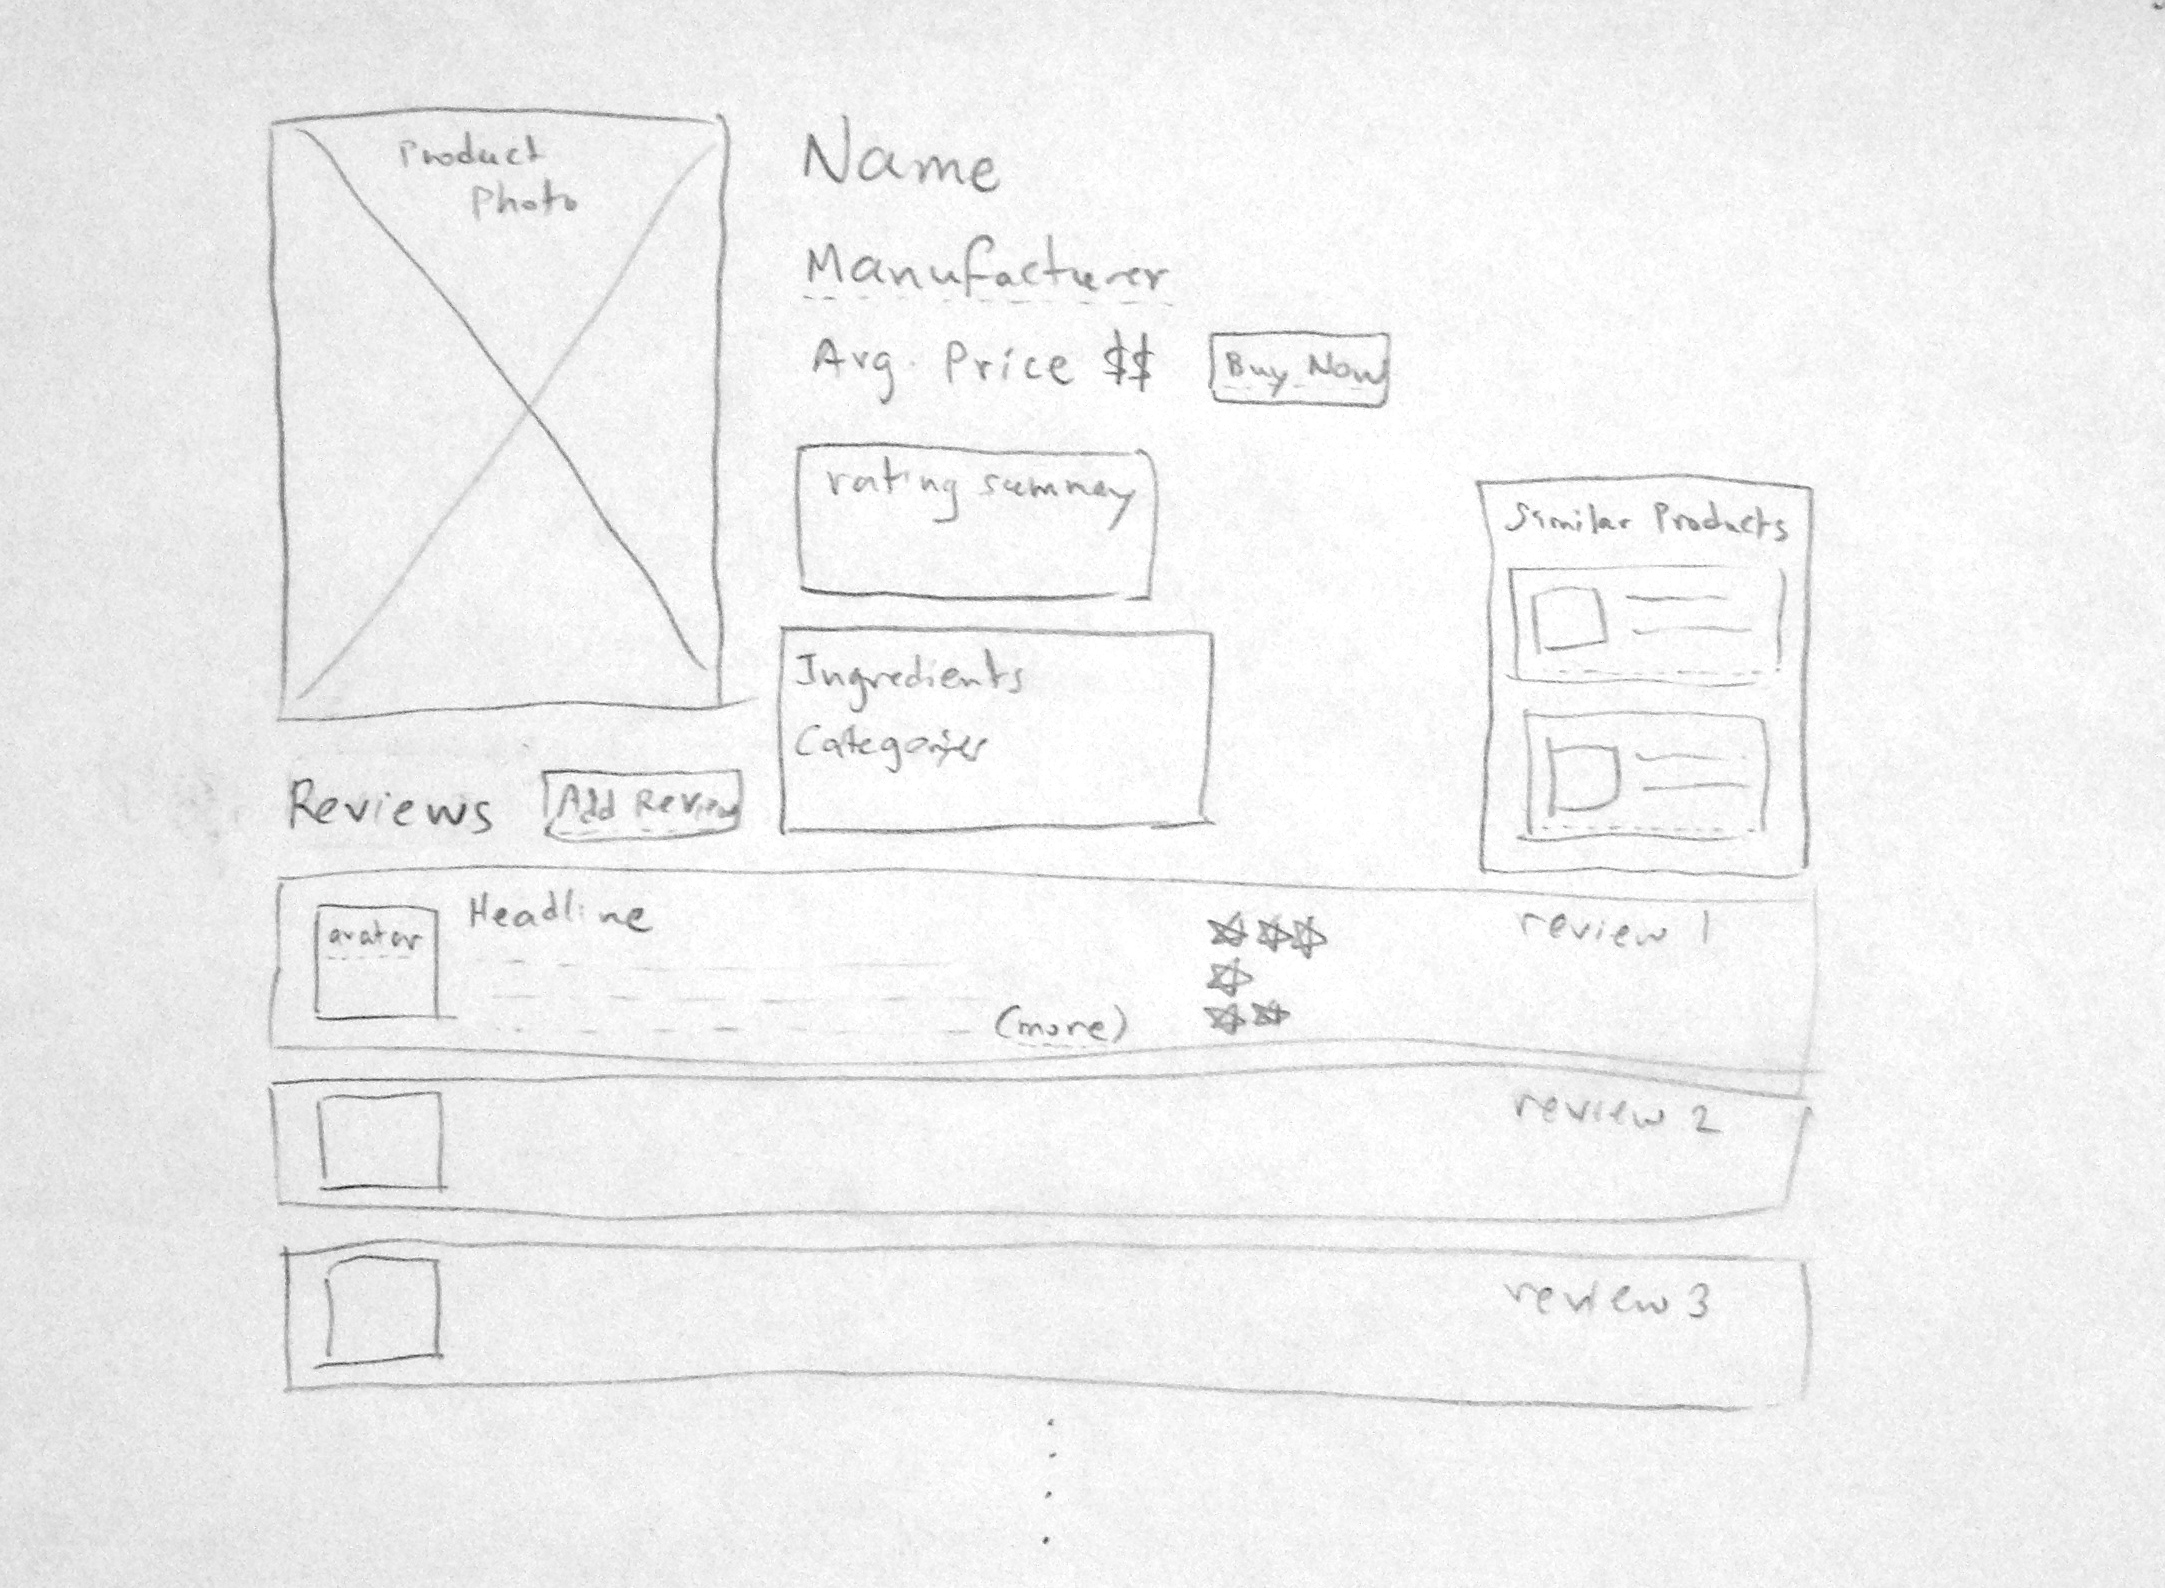 Product
Photo
Name
Manufacturer
Avg. Price $$
Buy Now
rating summay
Ingredients
Categories
Similar Products
Reviews
Add Review
avatar
Headline
(more)
review 1
review 2
review 3